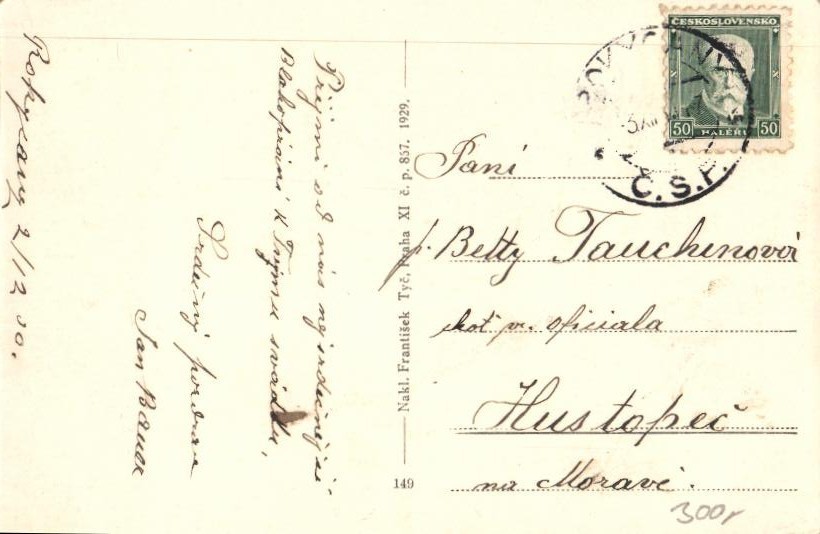 Rokycany 2/12 30.
Přijmi od nás nejsrdečnější
Blahopřání k Tvýmu svátku,
Srdečný pozdrav
Jan
Nakl. František Tyč, Praha XI č. p. 857. 1929.
149
ČESKOSLOVENSKO
50 HALÉŘŮ 50
ROKYCANY
Č.S.P.
Paní
p. Betty Tauchenová
choť vr. oficiala
Hustopeč
na Moravě.
300,-